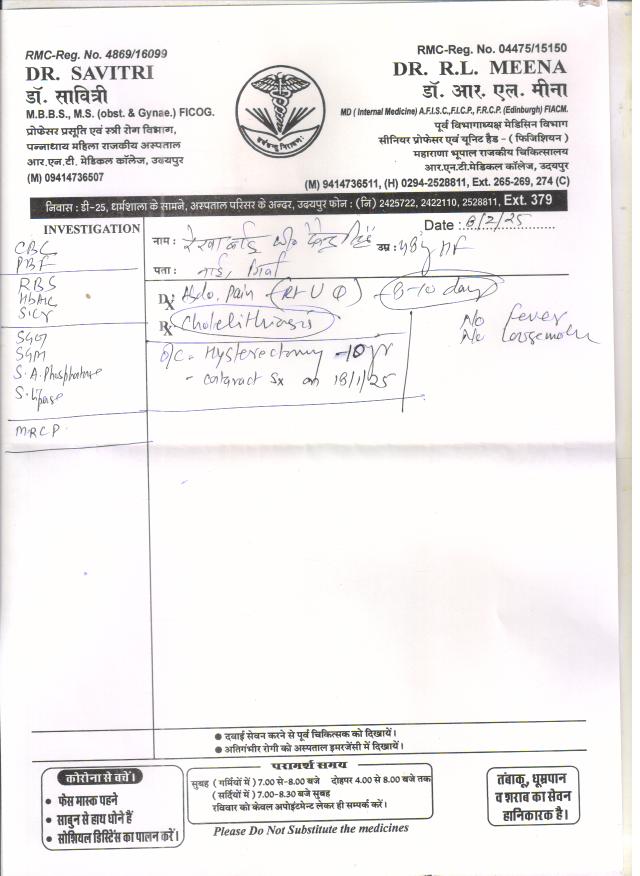 RMC-Reg. No. 4869/16099
DR. SAVITRI
डॉ. सावित्री
M.B.B.S., M.S. (obst. & Gynae.) FICOG.
प्रोफेसर प्रसूति एवं स्त्री रोग विभाग,
पन्नाधाय महिला राजकीय अस्पताल
आर.एन.टी. मेडिकल कॉलेज, उदयपुर
(M) 09414736507
RMC-Reg. No. 04475/15150
DR. R.L. MEENA
डॉ. आर. एल. मीना
MD ( Internal Medicine) A.F.I.S.C.,F.I.C.P., F.R.C.P. (Edinburgh) FIACM.
पूर्व विभागाध्यक्ष मेडिसिन विभाग
सीनियर प्रोफेसर एवं यूनिट हैड - ( फिजिशियन )
महाराणा भूपाल राजकीय चिकित्सालय
आर.एन.टी.मेडिकल कॉलेज, उदयपुर
(M) 9414736511, (H) 0294-2528811, Ext. 265-269, 274 (C)
निवास : डी-25, धर्मशाला के सामने, अस्पताल परिसर के अन्दर, उदयपुर फोन : (नि) 2425722, 2422110, 2528811, Ext. 379
INVESTIGATION
Date : 8/2/25
नाम :
उम्र :
पता :
CBC
PBF
RBS
HbA1C
S.Cr
SGOT
S. A. Phosphatase
S. Lipase
MRCP
Dx Abdo. Pain (Rt U Q) (8-10 days)
Rx Cholelithiasis
No fever
No
O/C - Hysterectomy - 10 yr
- Cataract Sx on 18/1/25
● दवाई सेवन करने से पूर्व चिकित्सक को दिखायें।
● अतिगंभीर रोगी को अस्पताल इमरजेंसी में दिखायें।
कोरोना से बचें।
• फेस मास्क पहने
• साबुन से हाथ धोने हैं
• सोशियल डिस्टेंस का पालन करें।
परामर्श समय
सुबह ( गर्मियों में ) 7.00 से-8.00 बजे दोहपर 4.00 से 8.00 बजे तक
( सर्दियों में ) 7.00-8.30 बजे सुबह
रविवार को केवल अपोइंटमेन्ट लेकर ही सम्पर्क करें।
Please Do Not Substitute the medicines
तंबाकू, धूम्रपान
व शराब का सेवन
हानिकारक है।